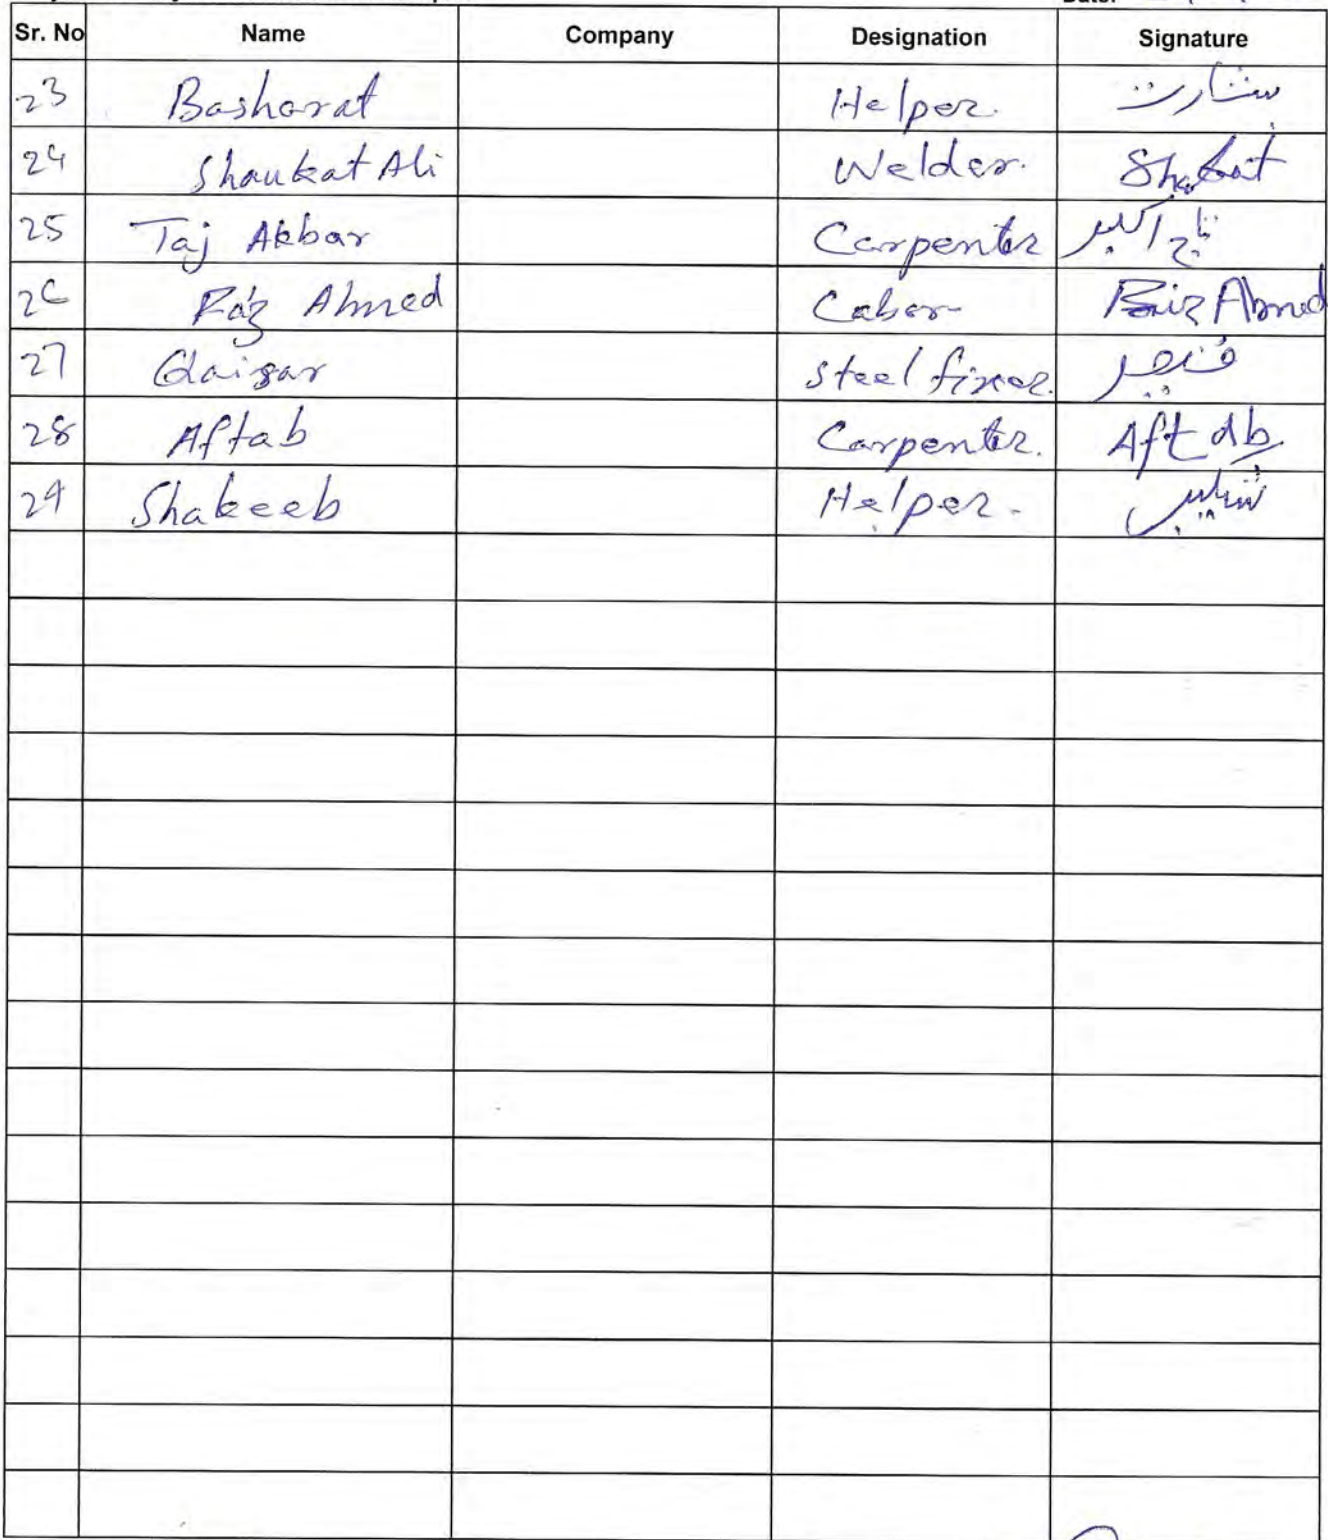 Sr. No Name Company Designation Signature
23 Basharat Helper. بشارت
24 Shaukat Ali Welder. Shakat
25 Taj Akbar Carpenter تاج اکبر
26 Faiz Ahmed Labor Faiz Ahmed
27 Qaisar Steel fixer. قیصر
28 Aftab Carpenter. Aftab
29 Shakeeb Helper.